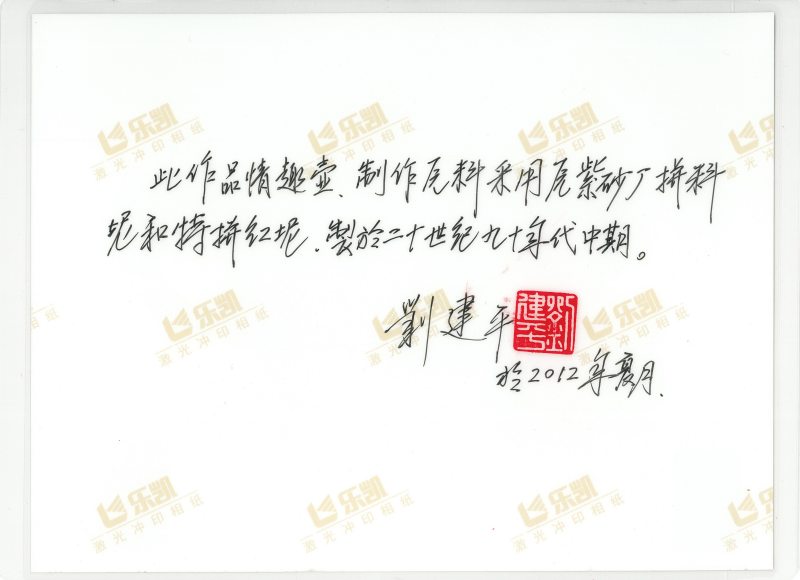 乐凯 乐凯 乐凯
激光冲印相纸 激光冲印相纸 激光冲印相纸
此作品情趣壶、制作原料采用原紫砂厂拼料
泥和特拼红泥.製於二十世紀九十年代中期。
劉建平
劉建平
於2012年夏月.
乐凯 乐凯 乐凯
激光冲印相纸 激光冲印相纸 激光冲印相纸
乐凯 乐凯 乐凯
激光冲印相纸 激光冲印相纸 激光冲印相纸